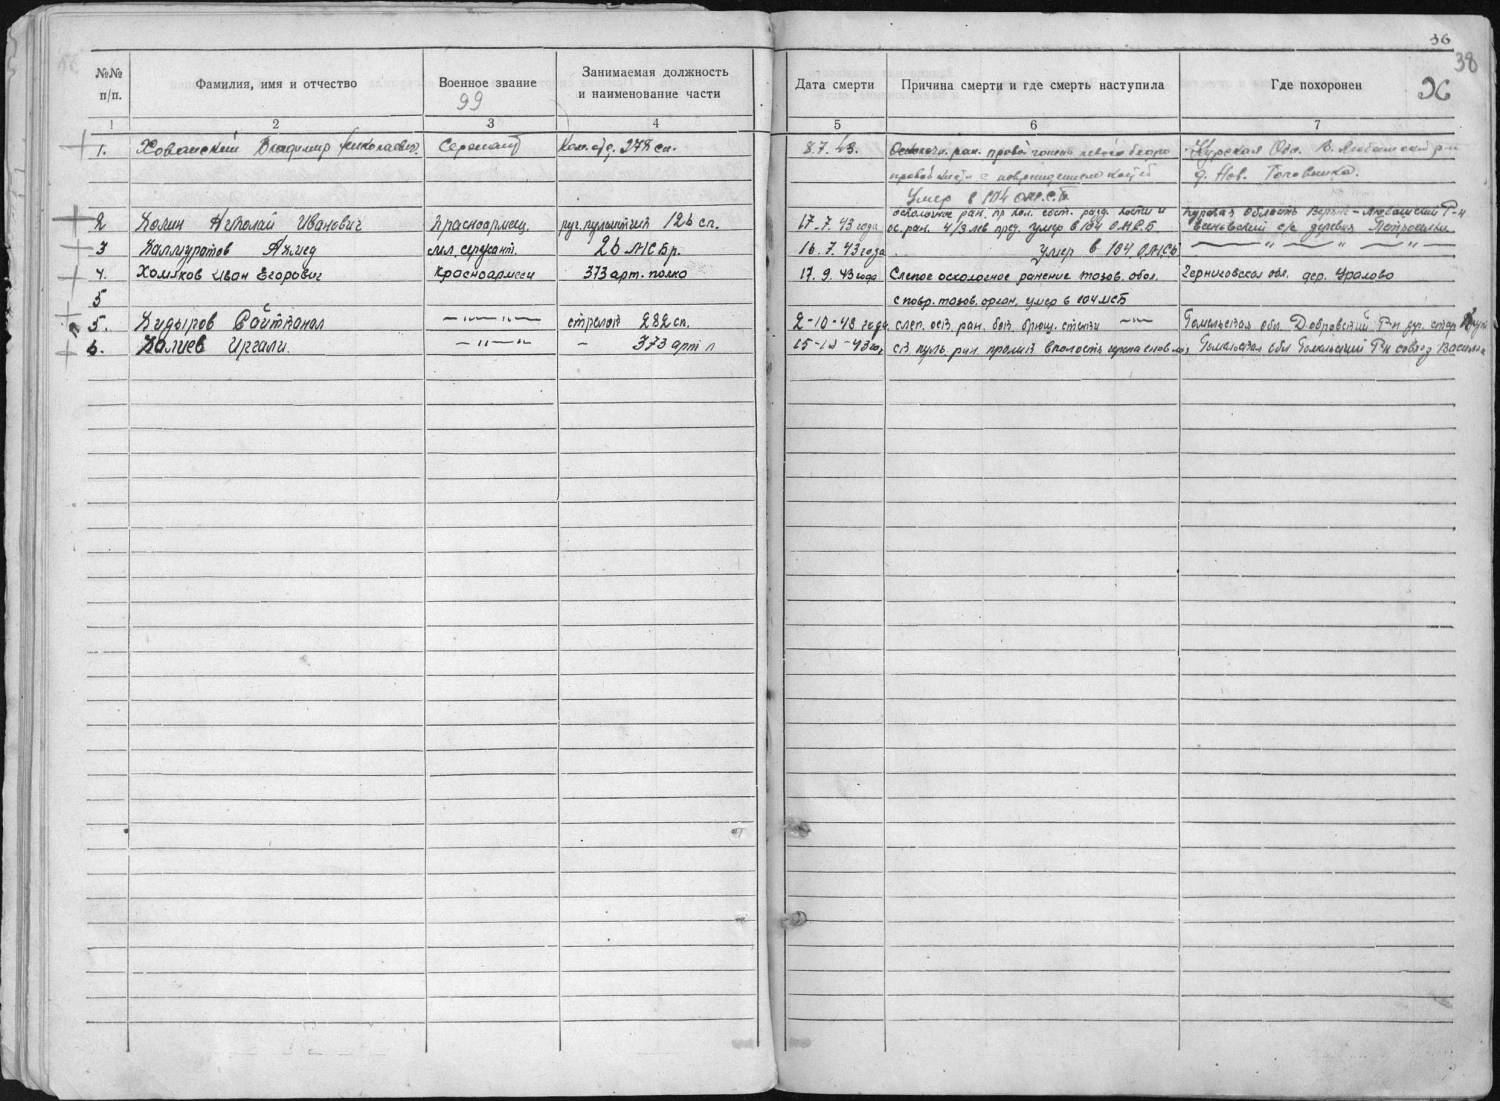 36
38
Ж
№№ п/п.
Фамилия, имя и отчество
Военное звание
99
Занимаемая должность и наименование части
Дата смерти
Причина смерти и где смерть наступила
Где похоронен
1 2 3 4 5 6 7
1. Хованский Владимир Николаевич. Сержант Ком. отд. 278 сп. 8.7.43. Осколочн. ран. левого бедра Курская Обл. В. Любашский р-н
с повреждением костей д. Нов. Головинка.
Умер в 104 ОМСБ
осколочное ран. кости и Курская область Верхне-Любашский Р-н
2 Холин Николай Иванович Красноармеец руч. пулеметчик 126 сп. 17.7.43 года ос. ран. умер в 104 О.М.С.Б. с/с деревня Петроселки
3 Халмуратов Ахмед мл. сержант. 26 МСБр. 16.7.43 года умер в 104 ОМСБ — " — " — " —
4. Хомяков Иван Егорович Красноармеец 373 арт. полка 17.9.43 года Слепое осколочное ранение тазов. обл. Черниговская обл. дер. Уралово
5 с повр. тазов. орган, умер в 104 МСБ
5. Хидыров Сойтханал — " — " — стрелок 282 сп. 2-10-43 года. слеп. оск. ран. бок. брюш. стенки — " — Гомельская обл. Добровский Р-н
6. Халиев Иргали. — " — " — - 373 арт п 15-10-43 ск. пуль. ран Гомельская обл Гомельский Р-н совхоз